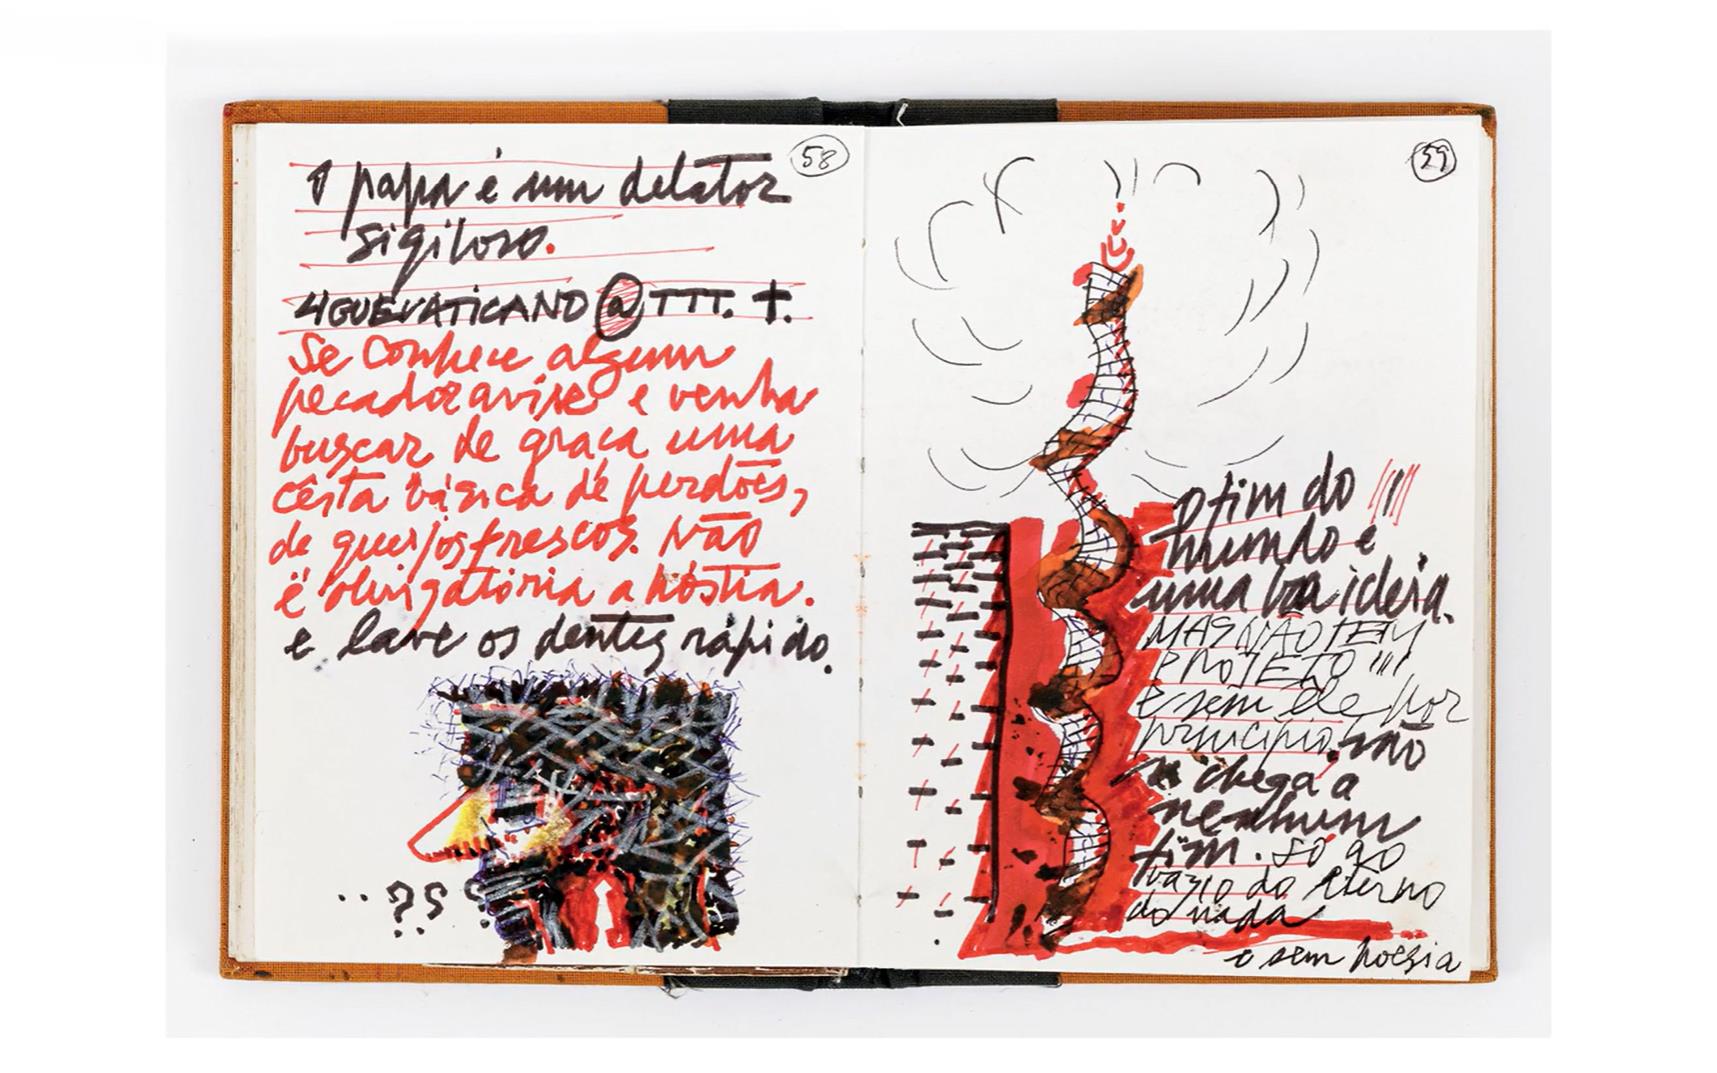 58
O papa é um delator
sigiloso.
LIGUEVATICANO@TTT. †.
Se conhece algum
pecador avise e venha
buscar de graça uma
cêsta básica de perdões,
de queijos frescos. Não
é obrigatória a hóstia.
e lave os dentes rápido.
..??
59
O fim do !!!!
mundo é
uma boa ideia.
MAS NÃO TEM
PROJETO !!!
e sem ele por
princípio. não
se chega a
nenhum
fim. Só ao
vazio do eterno
do nada
e sem poesia